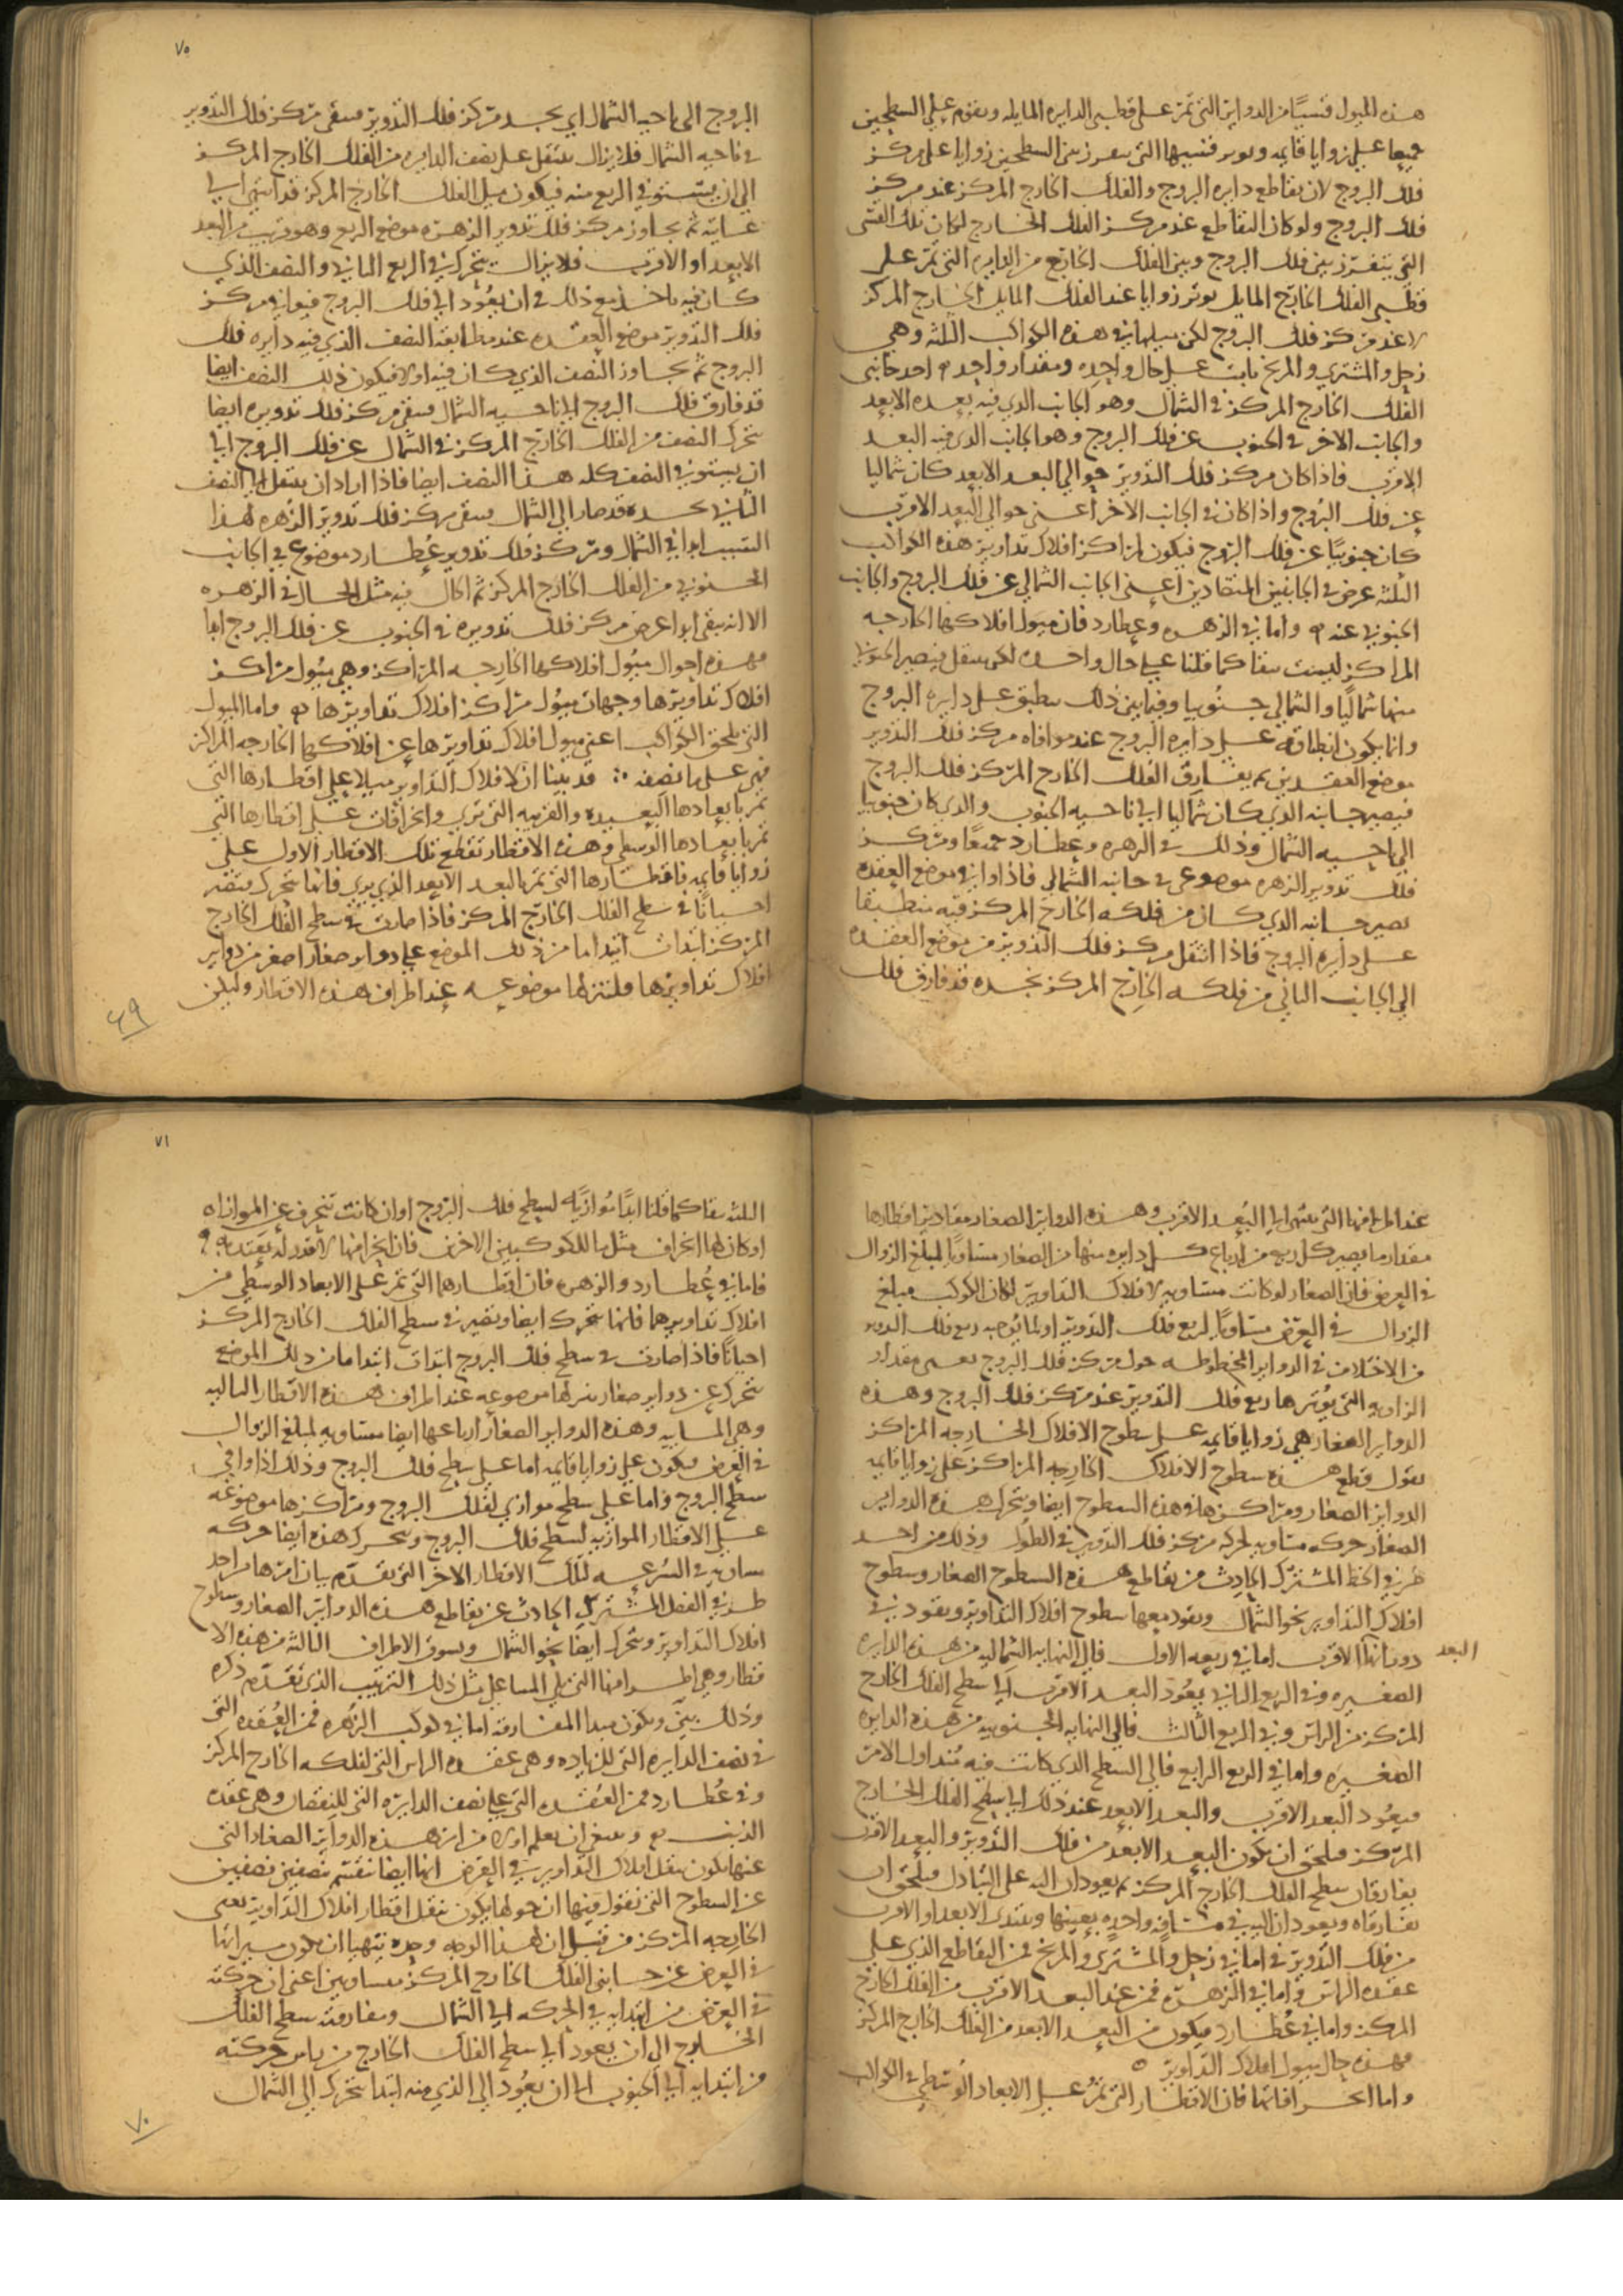 هذه الميول قسيًا من الدواير التي تمر على قطبى الدايره المايله وتقوم على السطحين
جميعا على زوايا قايمه وتوتر قسيها التي تفرز بين السطحين زوايا على مركز
فلك البروج لان تقاطع دايره البروج والفلك الخارج المركز عند مركز
فلك البروج ولو كان التقاطع عند مركز الفلك الخارج لكان تلك القسى
التي تنفرز بين فلك البروج وبين الفلك الخارج من الدايره التي تمر على
قطبى الفلك الخارج المايل توتر زوايا عند الفلك المايل الخارج المركز
لا عند مركز فلك البروج لكن ميلها في هذه الكواكب الثلثه وهي
زحل والمشتري والمريخ ثابت على حال واحده ومقدار واحد ۞ احد جانبى
الفلك الخارج المركز في الشمال وهو الجانب الذي فيه بعده الابعد
والجانب الاخر في الجنوب عن فلك البروج وهو الجانب الذي فيه البعد
الاقرب فاذا كان مركز فلك التدوير حوالي البعد الابعد كان شماليا
عن فلك البروج واذا كان في الجانب الاخر اعني حوالي البعد الاقرب
كان جنوبيًا عن فلك البروج فيكون لمراكز افلاك تداوير هذه الكواكب
الثلثه عرض في الجانبين المتضادين اعني الجانب الشمالي عن فلك البروج والجانب
الجنوبي عنه ۞ واما في الزهره وعطارد فان ميول افلاكها الخارجه
المراكز ليست تبقا كما قلنا على حال واحده لكن تنتقل فيصير الجنوبي
منها شماليًا والشمالي جنوبيا وفيما بين ذلك تنطبق على دايره البروج
وانما يكون انطباقه على دايره البروج عند موافاه مركز فلك التدوير
موضع العقدتين ثم يفارق الفلك الخارج المركز فلك البروج
فيصير جانبه الذي كان شماليا الي ناحيه الجنوب والذي كان جنوبيا
الي ناحيه الشمال وذلك في الزهره وعطارد جميعًا ومركز
فلك تدوير الزهره موضوع في جانبه الشمالي فاذا وافى موضع العقده
يصير جانبه الذي كان من فلكه الخارج المركز فيه منطبقا
على دايره البروج فاذا انتقل مركز فلك التدوير من موضع العقده
الي الجانب الثاني من فلكه الخارج المركز نجده قد فارق فلك
٧٥
البروج الى ناحيه الشمال اي نجد مركز فلك التدوير فيبقى مركز فلك التدوير
في ناحيه الشمال فلا يزال ينتقل على نصف الدايره من الفلك الخارج المركز
الي ان يستوفي الربع منه فيكون ميل الفلك الخارج المركز قد انتهى الي
غايته ثم يجاوز مركز فلك تدوير الزهره موضع الربع وهو قريب من البعد
الابعد او الاقرب فلا يزال يتحرك في الربع الثاني والنصف الذي
كان فيه ياخذ مع ذلك في ان يعود الي فلك البروج فيوافي مركز
فلك التدوير موضع العقده عند مطابقه النصف الذي فيه دايره فلك
البروج ثم يجاوز النصف الذي كان فيه اولا فيكون ذلك النصف ايضا
قد فارق فلك البروج الي ناحيه الشمال فيبقى مركز فلك تدويره ايضا
يتحرك النصف من الفلك الخارج المركز في الشمال عن فلك البروج الي
ان يستوفي النصف كله هذا النصف ايضا فاذا اراد ان ينتقل الي النصف
الثاني نجده قد صار الي الشمال فيبقى مركز فلك تدوير الزهره لهذا
السبب ابدا في الشمال ومركز فلك تدوير عطارد موضوع في الجانب
الجنوبي من الفلك الخارج المركز ثم الحال فيه مثل الحال في الزهره
الا انه يبقى ابدا عرض مركز فلك تدويره في الجنوب عن فلك البروج ابدا
فهذه احوال ميول افلاكها الخارجه المراكز وهي ميول مراكز
افلاك تداويرها وجهات ميول مراكز افلاك تداويرها ۞ واما الميول
التي تلحق الكواكب اعني ميول افلاك تداويرها عن افلاكها الخارجه المراكز
فهي على ما نصفه ∴ قد بينا ان لافلاك التداوير ميلا على اقطارها التي
تمر بابعادها البعيده والقريبه التي تري وانحرافات على اقطارها التي
تمر بابعادها الوسطى وهذه الاقطار تقطع تلك الاقطار الاول على
زوايا قايمه فاقطارها التي تمر بالبعد الابعد الذي يري فانها تتحرك فتصير
احيانًا في سطح الفلك الخارج المركز فاذا صارت في سطح الفلك الخارج
المركز ابتدات ابتدا ما من ذلك الموضع على دواير صغار اصغر من دواير
افلاك تداويرها فلننزلها موضوعه عند اطراف هذه الاقطار وليكن
٤٩
عند اطرافها التي تنتهي الي البعد الاقرب وهذه الدواير الصغار مقادير اقطارها
مقدار ما يصير كل ربع من ارباع كل دايره منها من الصغار مساويًا لمبلغ الزوال
في العرض فان الصغار لو كانت مساويه لافلاك التداوير لكان الكوكب مبلغ
الزوال في العرض مساويًا لربع فلك التدوير او لما يوجبه ربع فلك التدوير
من الاختلاف في الدواير المخطوطه حول مركز فلك البروج بعني مقدار
الزاويه التي يوترها ربع فلك التدوير عند مركز فلك البروج وهذه
الدواير الصغار هي زوايا قايمه على سطوح الافلاك الخارجه المراكز
نقول قطع هذه سطوح الافلاك الخارجه المراكز على زوايا قايمه
الدواير الصغار ومراكزها في هذه السطوح ايضا وتتحرك هذه الدواير
الصغار حركه مساويه لحركه مركز فلك التدوير في الطول وذلك من احد
طرفي الخط المشترك الحادث من تقاطع هذه السطوح الصغار وسطوح
افلاك التداوير نحو الشمال وتقود معها سطوح افلاك التداوير وتقود في
دورانها الاقرب اما في ربعه الاول فالي النهايه الشماليه من هذه الدايره
البعد
الصغيره وفي الربع الثاني يعود البعد الاقرب الي سطح الفلك الخارج
المركز من الراس وفي الربع الثالث فالي النهايه الجنوبيه من هذه الدايره
الصغيره واما في الربع الرابع فالي السطح الذي كانت فيه مبتدا اول الامر
فيعود البعد الاقرب والبعد الابعد عند ذلك الي سطح الفلك الخارج
المركز فيلحق ان يكون البعد الابعد من فلك التدوير والبعد الاقرب
يفارقان سطح الفلك الخارج المركز ثم يعودان اليه على التبادل فيلحق ان
يفارقاه ويعودان اليه في مسافه واحده بعينها ويبتدي الابعد او الاقرب
من فلك التدوير في اما في زحل والمشتري والمريخ فمن التقاطع الذي على
عقده الراس واما في الزهره فمن عند البعد الاقرب من الفلك الخارج
المركز واما في عطارد فيكون من البعد الابعد من الفلك الخارج المركز
فهذه حال ميول افلاك التداوير ۞
واما انحرافاتها فان الاقطار التي تمر على الابعاد الوسطى في الكواكب
٧١
الثلثه تبقا كما قلنا ابدًا موازيًه لسطح فلك البروج او ان كانت تنحرف عن الموازاه
او كان لها انحراف مثل ما للكوكبين الاخرين فان انحرافها لا قدر له يعتد به ۞
فاما في عطارد والزهره فان اقطارهما التي تمر على الابعاد الوسطى من
افلاك تداويرهما فانها تتحرك ايضا وتصير في سطح الفلك الخارج المركز
احيانًا فاذا صارت في سطح فلك البروج ابتدات ابتدا ما من ذلك الموضع
تتحرك عن دواير صغار ننزلها موضوعه عند اطراف هذه الاقطار التاليه
وهي المسايه وهذه الدواير الصغار ارباعها ايضا مساويه لمبلغ الزوال
في العرض فيكون على زوايا قايمه اما على سطح فلك البروج وذلك اذا وافى
سطح البروج واما على سطح موازي لفلك البروج ومراكزها موضوعه
على الاقطار الموازيه لسطح فلك البروج وتتحرك هذه ايضا حركه
مساويه في السرعه لتلك الاقطار الاخر التي تقدم بيان امرها من احد
طرفي الفصل المشترك الحادث عن تقاطع هذه الدواير الصغار وسطوح
افلاك التداوير وتتحرك ايضا نحو الشمال وتسوق الاطراف التاليه من هذه الا
قطار وهي اطرافها التي تلي المسا على مثل ذلك الترتيب الذي تقدم ذكره
وذلك بين ويكون مبدا المفارقه اما في كوكب الزهره فمن العقده التي
في نصف الدايره التي للزياده وهي عقده الراس التي لفلكه الخارج المركز
وفي عطارد فمن العقده التي على نصف الدايره التي للنقصان وهي عقده
الذنب ۞ وينبغي ان يعلم اولا من امر هذه الدواير الصغار التي
عنها يكون ينتقل افلاك التداوير في العرض انها ايضا تنقسم بنصفين نصفين
عن السطوح التي نقول فيها ان حولها يكون تنقل اقطار افلاك التداوير يعني
الخارجه المركز من قبل ان هذا الوجه وحده يتهيا ان يكون مسيراتها
في العرض عن جانبي الفلك الخارج المركز متساويين اعني ان حركته
في العرض من ابتدايه في الحركه الي الشمال ومفارقته سطح الفلك
الخارج الى ان يعود الي سطح الفلك الخارج من باب حركته
من ابتدايه الي الجنوب الى ان يعود الي الذي منه ابتدا يتحرك الى الشمال
٧٠